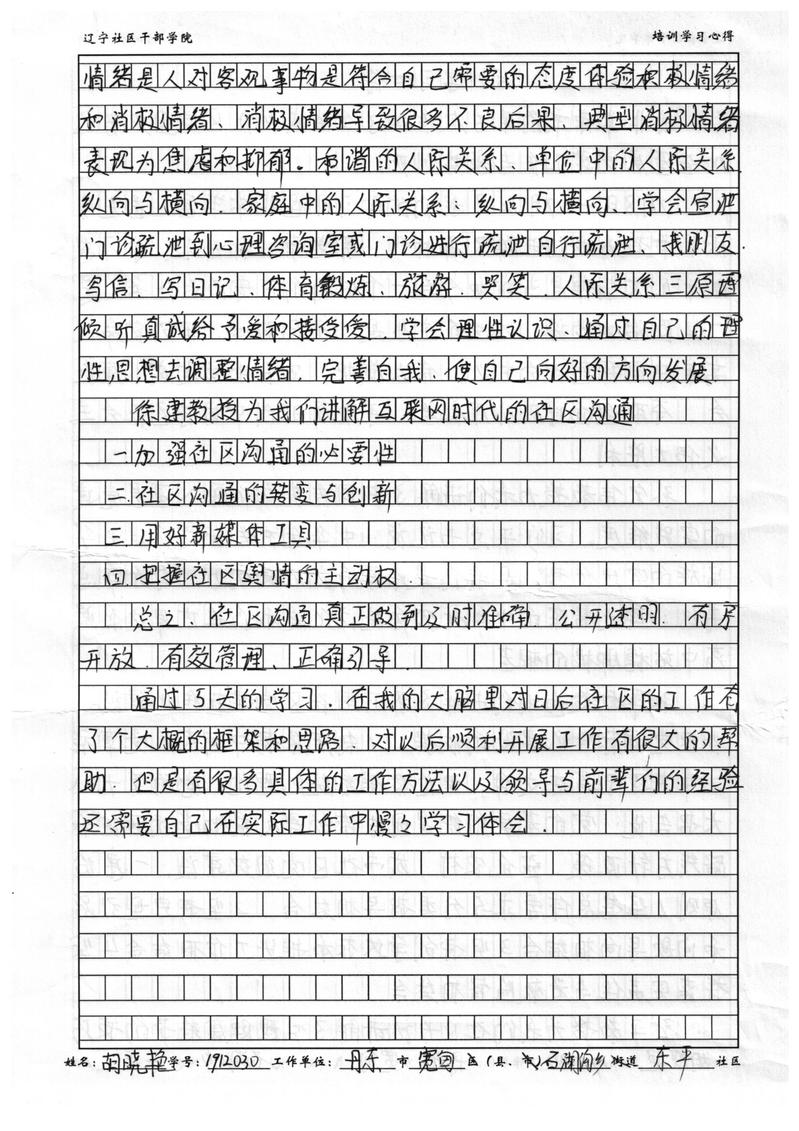 辽宁社区干部学院 培训学习心得
情绪是人对客观事物是符合自己需要的态度体验积极情绪
和消极情绪、消极情绪导致很多不良后果、典型消极情绪
表现为焦虑和抑郁。和谐的人际关系、单位中的人际关系
纵向与横向、家庭中的人际关系：纵向与横向、学会宣泄
门诊疏泄到心理咨询室或门诊进行疏泄自行疏泄、找朋友.
写信、写日记、体育锻炼、旅游、哭笑、人际关系三原理
倾听真诚给予爱和接受爱、学会理性认识、通过自己的理
性思想去调整情绪，完善自我、使自己向好的方向发展
徐建教授为我们讲解互联网时代的社区沟通
一加强社区沟通的必要性
二社区沟通的转变与创新
三用好新媒体工具
四把握社区舆情的主动权
总之、社区沟通真正做到及时准确 公开透明、有序
开放、有效管理、正确引导.
通过5天的学习、在我的大脑里对日后社区的工作有
了个大概的框架和思路、对以后顺利开展工作有很大的帮
助、但是有很多具体的工作方法以及领导与前辈们的经验
还需要自己在实际工作中慢之学习体会.
姓名：胡晓艳 学号：1912030 工作单位：丹东 市 宽甸 区（县、市）石湖沟乡 街道 东平 社区